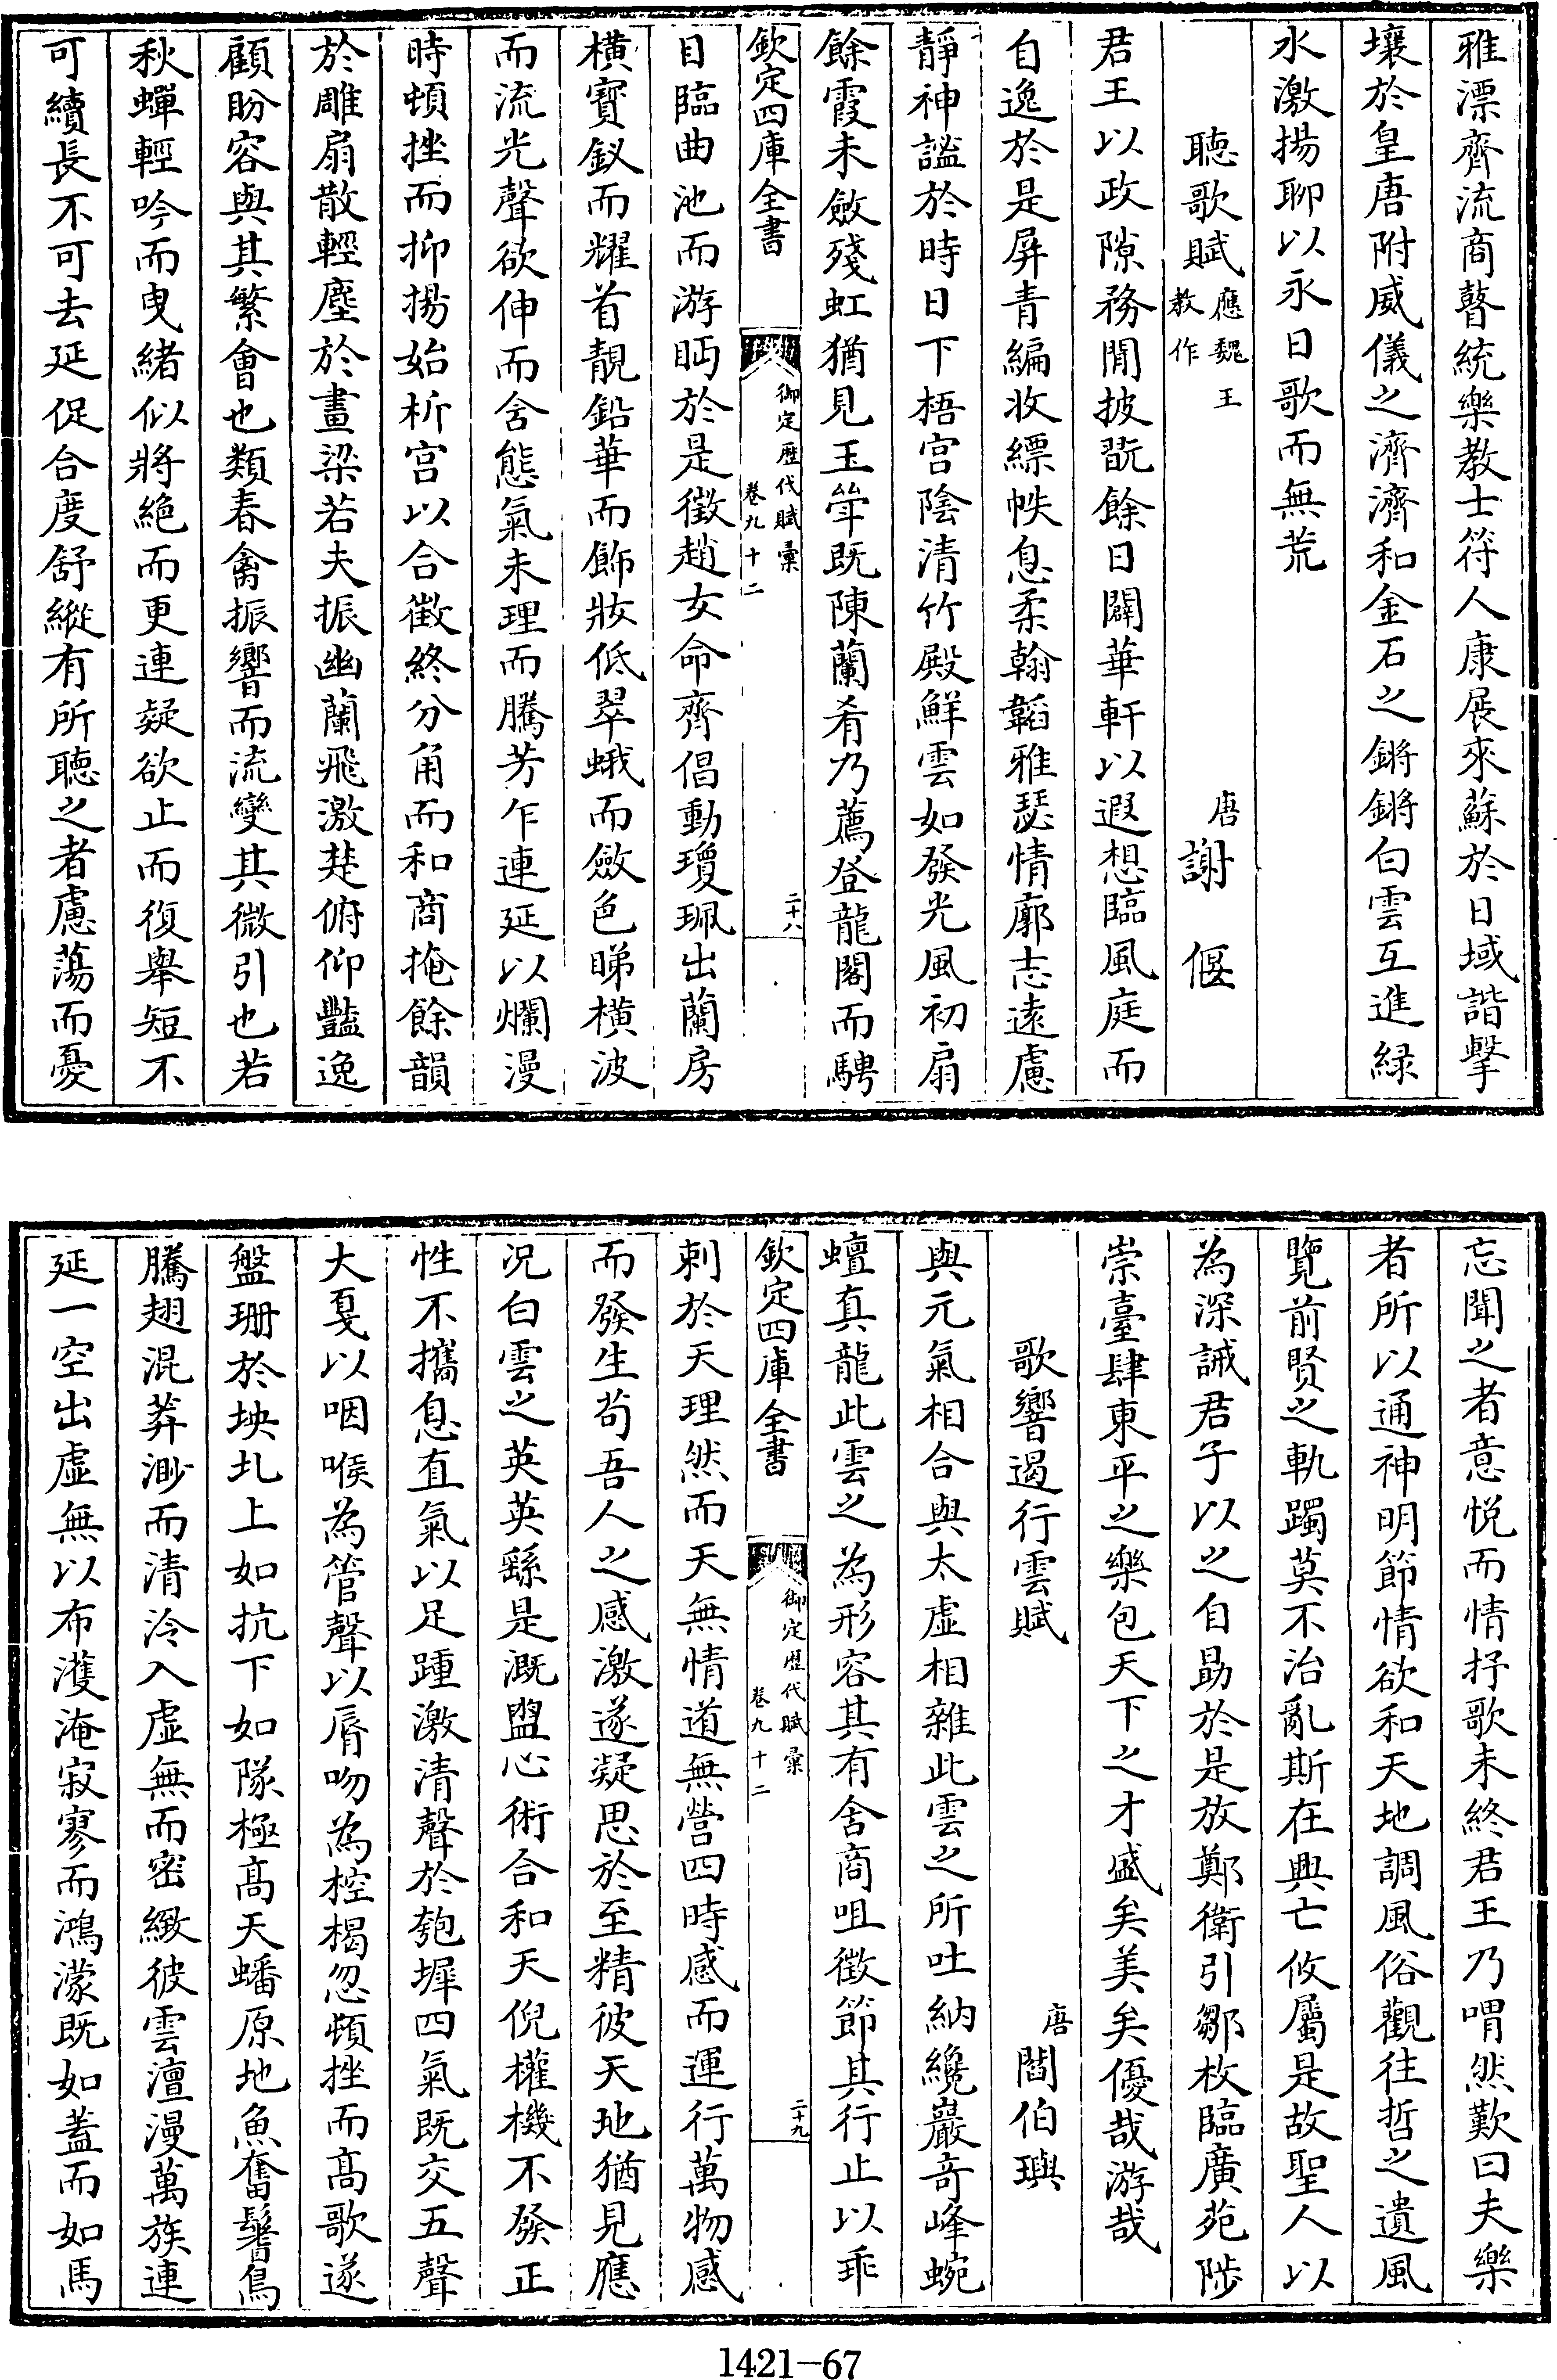 雅漂齊流商瞽統樂教士符人康展來蘇於日域諧擊
壤於皇唐附威儀之濟濟和金石之鏘鏘白雲互進緑
水激揚聊以永日歌而無荒
聽歌賦應魏王教作 唐謝偃
君王以政隙務閒披翫餘日闢華軒以遐想臨風庭而
自逸於是屏青編收縹帙息柔翰韜雅瑟情廓志遠慮
靜神謐於時日下梧宫陰清竹殿鮮雲如發光風初扇
餘霞未斂殘虹猶見玉斚既陳蘭肴乃薦登龍閣而騁
欽定四庫全書 御定歴代賦彙 卷九十二 二十八
目臨曲池而游眄於是徵趙女命齊倡動瓊珮出蘭房
橫寳釵而耀首靚鉛華而飾妝低翠蛾而斂色睇橫波
而流光聲欲伸而含態氣未理而騰芳乍連延以爛漫
時頓挫而抑揚始析宫以合徵終分角而和商掩餘韻
於雕扇散輕塵於畫梁若夫振幽蘭飛激楚俯仰豔逸
顧盼容與其繁會也類春禽振響而流變其微引也若
秋蟬輕吟而曳緒似將絶而更連疑欲止而復舉短不
可續長不可去延促合度舒縱有所聽之者慮蕩而憂
忘聞之者意悦而情抒歌未終君王乃喟然歎曰夫樂
者所以通神明節情欲和天地調風俗觀往哲之遺風
覽前賢之軌躅莫不治亂斯在興亡攸屬是故聖人以
為深誡君子以之自勗於是放鄭衛引鄒枚臨廣苑陟
崇臺肆東平之樂包天下之才盛矣美矣優哉游哉
歌響遏行雲賦 唐閻伯璵
與元氣相合與太虛相雜此雲之所吐納纔巖奇峰蜿
蟺真龍此雲之為形容其有含商咀徵節其行止以乖
欽定四庫全書 御定歴代賦彙 卷九十二 二十九
刺於天理然而天無情道無營四時感而運行萬物感
而發生茍吾人之感激遂凝思於至精彼天地猶見應
況白雲之英英繇是溉盥心術合和天倪權機不發正
性不攜息直氣以足踵激清聲於匏墀四氣既交五聲
大戛以咽喉為管聲以脣吻為椌楬忽頓挫而髙歌遂
盤珊於坱圠上如抗下如隊極髙天蟠原地魚奮鬐鳥
騰翅混莽渺而清泠入虛無而密緻彼雲澶漫萬族連
延一空出虛無以布濩淹寂寥而鴻濛既如蓋而如馬
1421-67